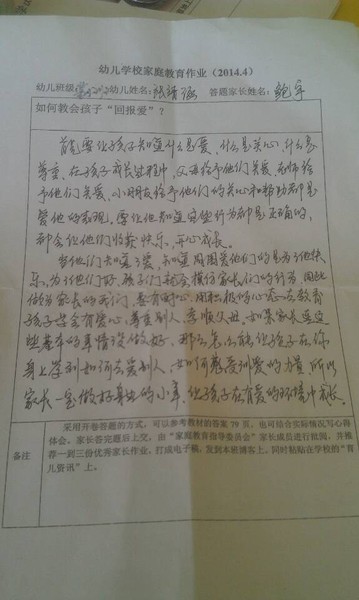 幼儿学校家庭教育作业（2014.4）
幼儿班级: 幼儿姓名: 答题家长姓名:
如何教会孩子“回报爱”？
首先要让孩子知道什么是爱、什么是关心、什么是
尊重。在孩子成长过程中，父母给予他们关爱，老师给
予他们关爱，小朋友给予他们的关心和帮助都是
爱他的表现，要让他知道这些行为都是正确的，
都会让他们收获快乐，开心成长。
当他们知道了爱，知道周围爱他们的是为他快
乐，为让他们好，孩子们就会模仿家长们的行为，因此
做为家长的我们，要有耐心，用积极的心态去教育
孩子学会有爱心，尊重别人，孝顺父母，如果家长连这
些基本的事情没做好，那么怎么能让孩子在你
身上学到如何去爱别人，如何感受到爱的力量，所以
家长一定做好身边的小事，让孩子在有爱的环境中成长。
备注
采用开卷答题的方式，可以参考教材的答案 79 页，也可结合实际情况写心得
体会。家长答完题后上交，由“家庭教育指导委员会”家长成员进行批阅，并推
荐一到三份优秀家长作业，打成电子稿，发到本班博客上，同时粘贴在学校的“育
儿资讯”上。